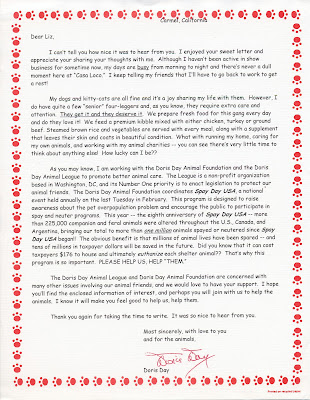 Carmel, California
Dear Liz,
I can't tell you how nice it was to hear from you. I enjoyed your sweet letter and
appreciate your sharing your thoughts with me. Although I haven't been active in show
business for sometime now, my days are busy from morning to night and there's never a dull
moment here at "Casa Loco." I keep telling my friends that I'll have to go back to work to get
a rest!
My dogs and kitty-cats are all fine and it's a joy sharing my life with them. However, I
do have quite a few "senior" four-leggers and, as you know, they require extra care and
attention. They get it and they deserve it. We prepare fresh food for this gang every day
and do they love it! We feed a premium kibble mixed with either chicken, turkey or ground
beef. Steamed brown rice and vegetables are served with every meal, along with a supplement
that leaves their skin and coats in beautiful condition. What with running my home, caring for
my own animals, and working with my animal charities -- you can see there's very little time to
think about anything else! How lucky can I be??
As you may know, I am working with the Doris Day Animal Foundation and the Doris
Day Animal League to promote better animal care. The League is a non-profit organization
based in Washington, DC, and its Number One priority is to enact legislation to protect our
animal friends. The Doris Day Animal Foundation coordinates Spay Day USA, a national
event held annually on the last Tuesday in February. This program is designed to raise
awareness about the pet overpopulation problem and encourage the public to participate in
spay and neuter programs. This year -- the eighth anniversary of Spay Day USA -- more
than 225,000 companion and feral animals were altered throughout the U.S., Canada, and
Argentina, bringing our total to more than one million animals spayed or neutered since Spay
Day USA began! The obvious benefit is that millions of animal lives have been spared -- and
tens of millions in taxpayer dollars will be saved in the future. Did you know that it can cost
taxpayers $176 to house and ultimately euthanize each shelter animal?? That's why this
program is so important. PLEASE HELP US, HELP "THEM."
The Doris Day Animal League and Doris Day Animal Foundation are concerned with
many other issues involving our animal friends, and we would love to have your support. I hope
you'll find the enclosed information of interest, and perhaps you will join with us to help the
animals. I know it will make you feel good to help us, help them.
Thank you again for taking the time to write. It was so nice to hear from you.
Most sincerely, with love to you
and for the animals,
Doris Day
Doris Day